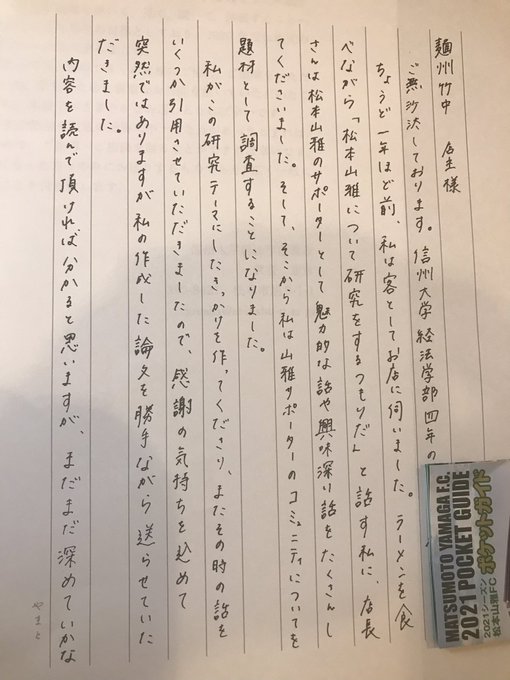 麺州竹中 店主様
ご無沙汰しております。信州大学経法学部四年の
ちょうど一年ほど前、私は客としてお店に伺いました。ラーメンを食
べながら「松本山雅について研究をするつもりだ」と話す私に、店長
さんは松本山雅のサポーターとして魅力的な話や興味深い話をたくさんし
てくださいました。そして、そこから私は山雅サポーターのコミュニティについてを
題材として調査することになりました。
私がこの研究テーマにしたきっかけを作ってくださり、またその時の話を
いくつか引用させていただきましたので、感謝の気持ちを込めて
突然ではありますが私の作成した論文を勝手ながら送らせていた
だきました。
内容を読んで頂ければ分かると思いますが、まだまだ深めていかな
やまと
MATSUMOTO YAMAGA F.C.
2021 POCKET GUIDE
ポケットガイド
2021シーズン
松本山雅FC